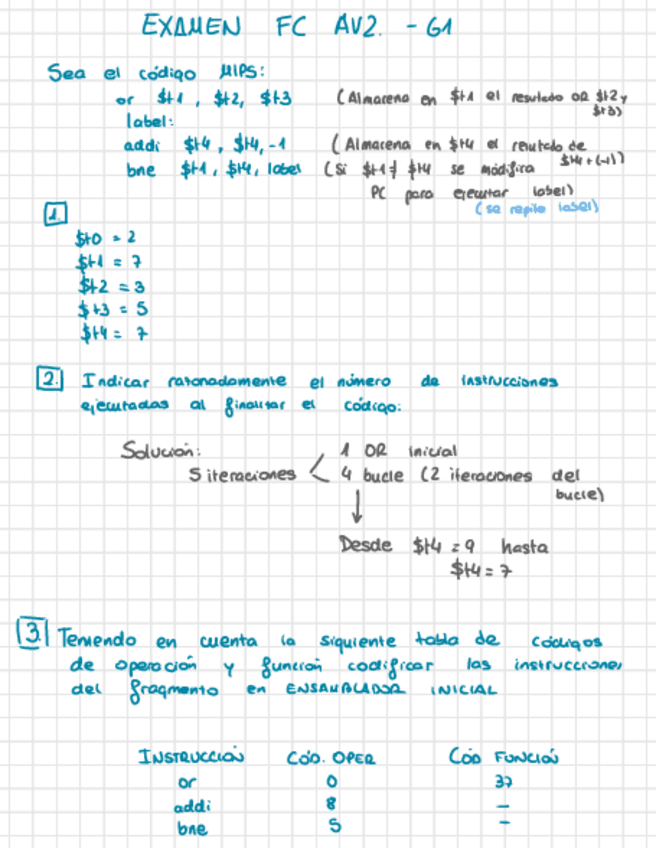 EXAMEN FC AV2. - G1
Sea el código MIPS:
or $t1, $t2, $t3 (Almacena en $t1 el resultado OR $t2 y $t3)
label:
addi $t4, $t4, -1 (Almacena en $t4 el resultado de $t4 + (-1))
bne $t1, $t4, label (Si $t1 ≠ $t4 se modifica
PC para ejecutar label)
(se repite label)
1.
$t0 = 2
$t1 = 7
$t2 = 3
$t3 = 5
$t4 = 7
2. Indicar razonadamente el número de instrucciones
ejecutadas al finalizar el código:
Solución: 1 OR inicial
5 iteraciones < 4 bucle (2 iteraciones del
bucle)
Desde $t4 = 9 hasta
$t4 = 7
3. Teniendo en cuenta la siguiente tabla de códigos
de operación y función codificar las instrucciones
del fragmento en ENSAMBLADOR INICIAL
INSTRUCCIÓN CÓD. OPER CÓD FUNCIÓN
or 0 37
addi 8 -
bne 5 -